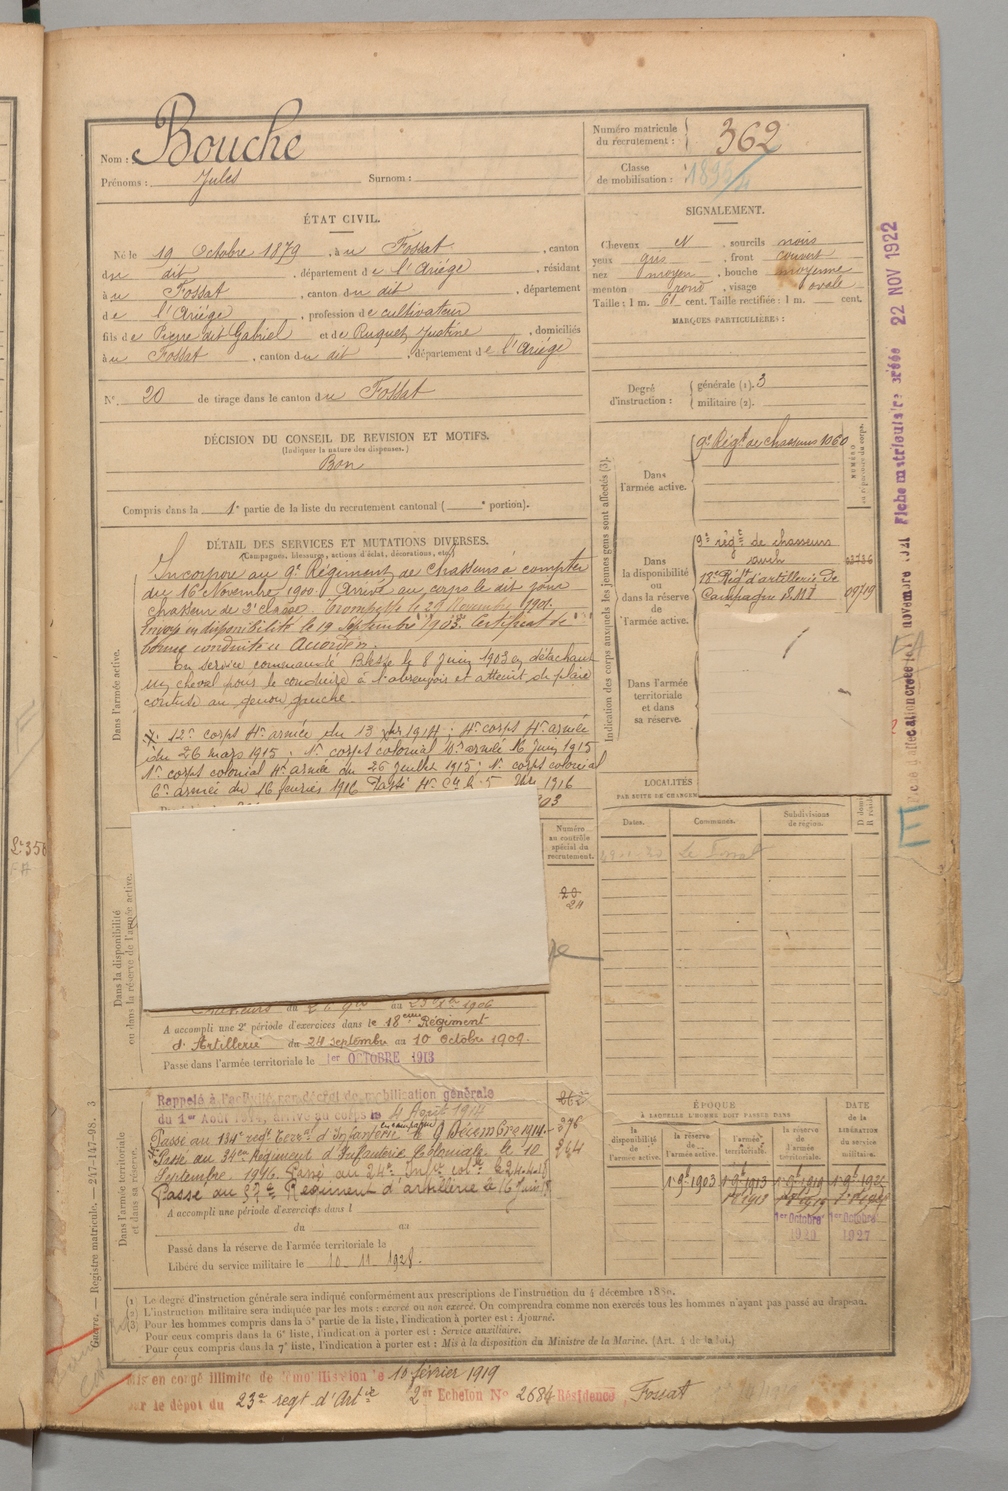 Nom : Bouche
Prénoms : Jules Surnom :
Numéro matricule du recrutement : 362
Classe de mobilisation :
ÉTAT CIVIL.
Né le 19 Octobre 1879, à u Fossat, canton
du dit, département de l'Ariége, résidant
à u Fossat, canton du dit, département
de l'Ariége, profession de cultivateur
fils de Pierre dit Gabriel et de Ruquet Justine, domiciliés
à u Fossat, canton du dit, département de l'Ariége
N° 20 de tirage dans le canton du Fossat
SIGNALEMENT.
Cheveux et, sourcils noirs
yeux gris, front couvert
nez moyen, bouche moyenne
menton rond, visage ovale
Taille : 1 m. 61 cent. Taille rectifiée : 1 m. cent.
MARQUES PARTICULIÈRES :
Degré d'instruction : générale (1). 3
militaire (2).
DÉCISION DU CONSEIL DE REVISION ET MOTIFS.
(Indiquer la nature des dispenses.)
Bon
Compris dans la 1e partie de la liste du recrutement cantonal ( e portion).
DÉTAIL DES SERVICES ET MUTATIONS DIVERSES.
(Campagnes, blessures, actions d'éclat, décorations, etc.)
Dans l'armée active.
Incorporé au 9e Régiment de Chasseurs à compter
du 16 Novembre 1900. Arrivé au corps le dit jour
chasseur de 2e classe. Trompette le 29 Novembre 1901.
Envoyé en disponibilité le 19 Septembre 1903. Certificat de
bonne conduite Accordé.
En service commandé Blessé le 8 Juin 1903 en détachant
un cheval pour le conduire à l'abreuvoir et atteint de plaie
contuse au genou gauche.
12e corps 4e armée du 13 Xbre 1914 ; 4e corps 4e armée
du 26 mars 1915 ; 1er corps colonial armée 16 Juin 1915
1er corps colonial 4e armée du 26 Juillet 1915 ; 1er corps colonial
6e armée du 16 fevrier 1916
1916
Indication des corps auxquels les jeunes gens sont affectés (3).
NUMÉRO au répertoire du corps.
Dans l'armée active.
9e Régt de chasseurs 1060
Dans la disponibilité ou dans la réserve de l'armée active.
9e régt de chasseurs
18e Régt d'artillerie de
Campagne
09719
Dans l'armée territoriale et dans sa réserve.
LOCALITÉS
PAR SUITE DE CHANGEM
Dates. Communes. Subdivisions de région.
Le Fossat
Numéro au contrôle spécial du recrutement.
20
Dans la disponibilité ou dans la réserve de l'armée active.
1906
A accompli une 2e période d'exercices dans le 18eme Régiment
d'Artillerie du 24 septembre au 10 Octobre 1909.
Passe dans l'armée territoriale le 1er OCTOBRE 1913
Dans l'armée territoriale et dans sa réserve.
Rappelé à l'activité par décret de mobilisation générale
du 1er Août 1914, arrivé au corps le 4 Août 1914
Passé au 134e regt Terral d'Infanterie le 9 Décembre 1914
Passé au 34eme Régiment d'Infanterie Coloniale le 10
Septembre 1916. Passé au 24e
Passé au 23e Régiment d'artillerie le 16 Juin 18
A accompli une période d'exercices dans l
du au
Passé dans la réserve de l'armée territoriale le
Libéré du service militaire le 10 - 11 - 1928.
276
ÉPOQUE
À LAQUELLE L'HOMME DOIT PASSER DANS
DATE de la LIBÉRATION du service militaire.
la disponibilité de l'armée active. la réserve de l'armée active. l'armée territoriale. la réserve de l'armée territoriale.
1er Octobre 1er Octobre
1920 1927
(1) Le degré d'instruction générale sera indiqué conformément aux prescriptions de l'instruction du 4 décembre 1889.
(2) L'instruction militaire sera indiquée par les mots : exercé ou non exercé. On comprendra comme non exercés tous les hommes n'ayant pas passé au drapeau.
(3) Pour les hommes compris dans la 5e partie de la liste, l'indication à porter est : Ajourné.
Pour ceux compris dans la 6e liste, l'indication à porter est : Service auxiliaire.
Pour ceux compris dans la 7e liste, l'indication à porter est : Mis à la disposition du Ministre de la Marine. (Art. 4 de la loi.)
Mis en congé illimité de démobilisation le 10 février 1919
par le dépôt du 23e regt d'Artie 2er Echelon No 2684 Résidence Fossat
Guerre. — Registre matricule. — 217-147-98. 3
Fiche matriculaire créée 22 NOV 1922